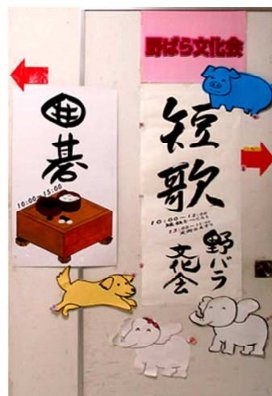 野ばら文化会
囲
碁
10:00~15:00
短
歌
10:00~12:00
13:00~15:00
野バラ
文化会